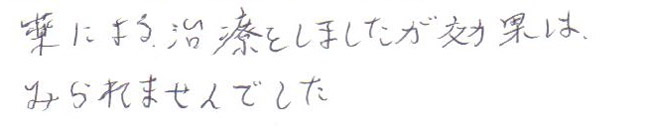 薬による治療をしましたが効果は、
みられませんでした